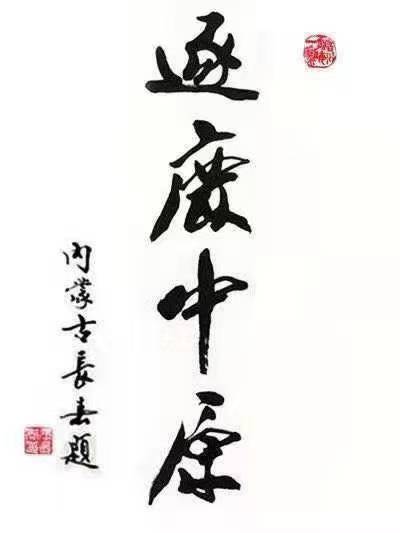 逐鹿中原
内蒙古長春題